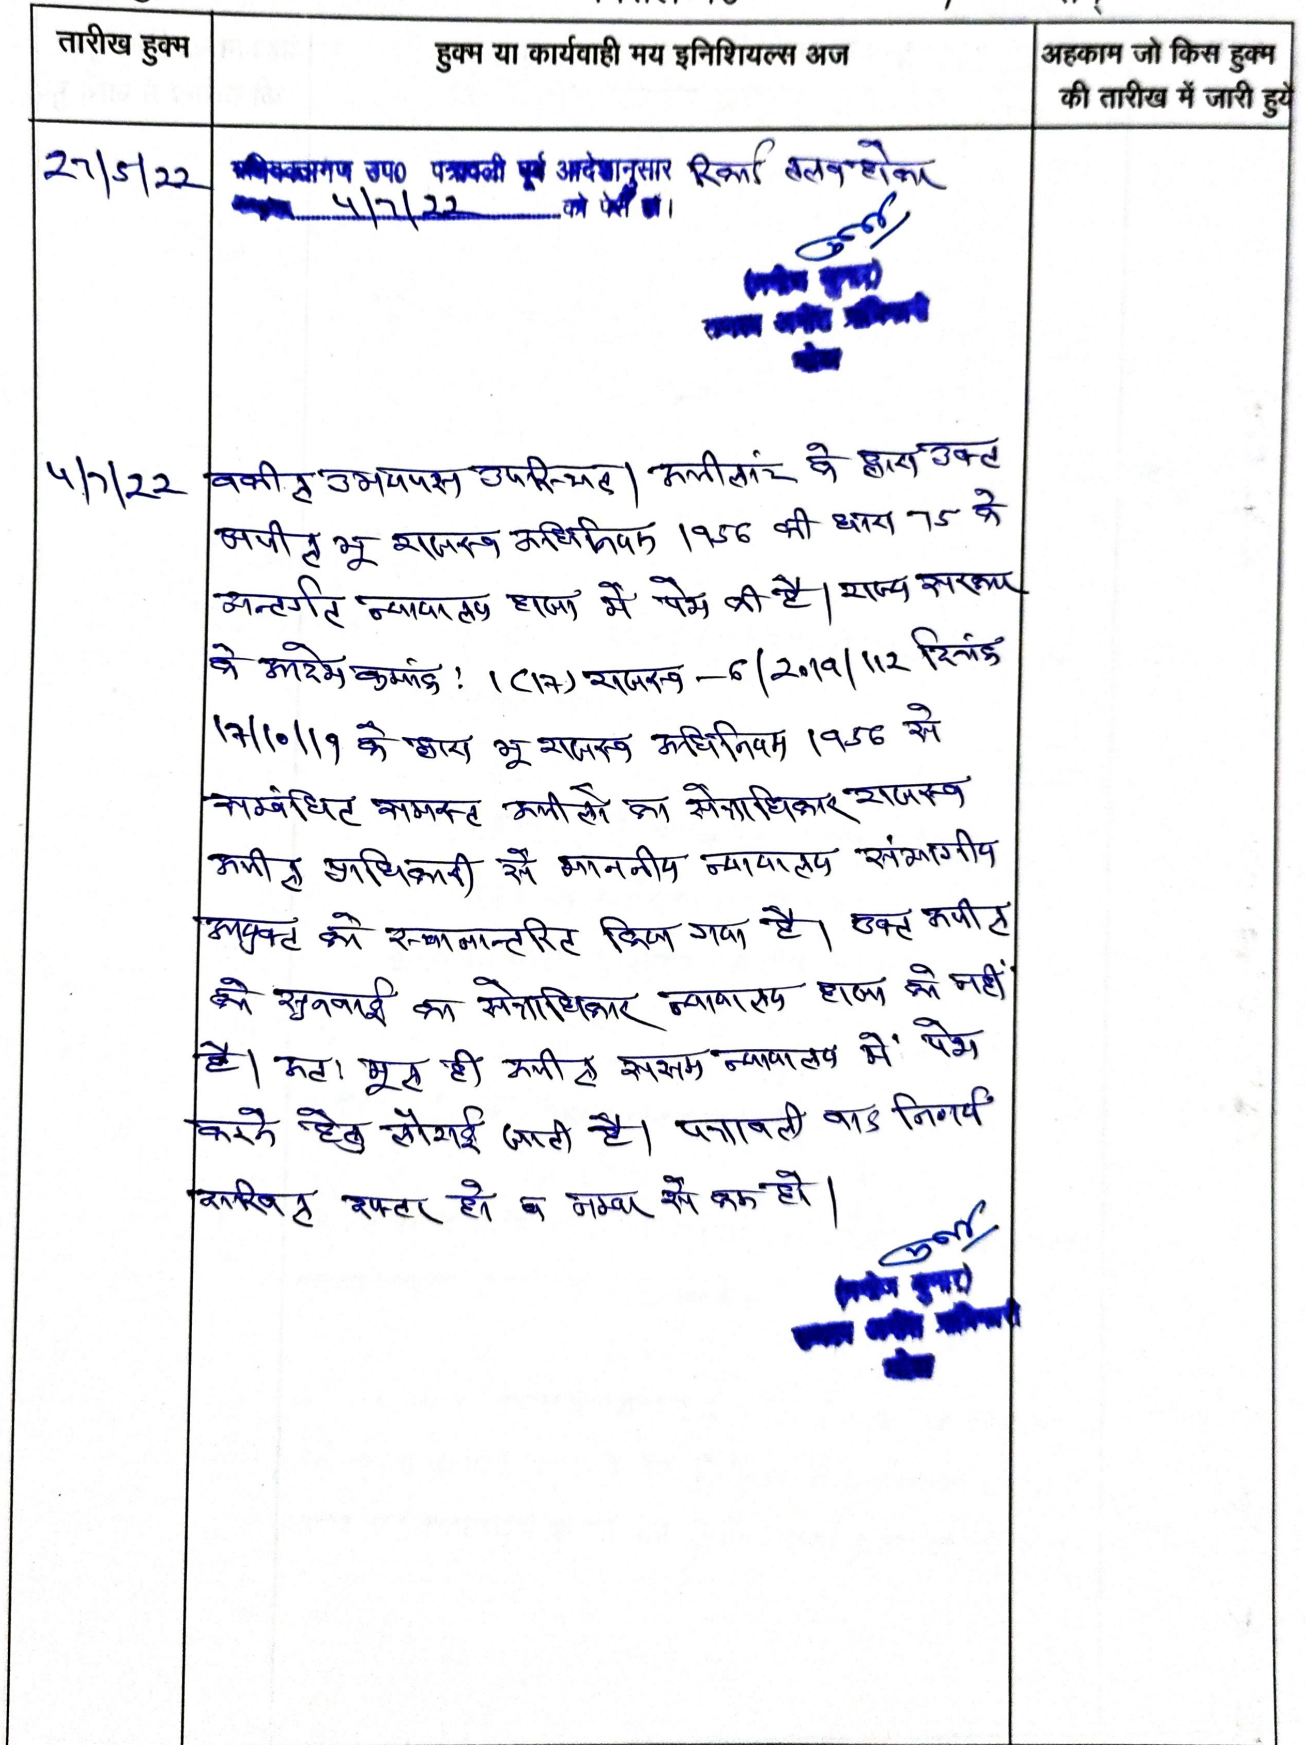 तारीख हुक्म
हुक्म या कार्यवाही मय इनिशियल्स अज
अहकाम जो किस हुक्म
की तारीख में जारी हुये
27/5/22
उप0 पत्रावली पूर्व आदेशानुसार रिकार्ड तलब होकर
4/7/22 को पेश हो।
4/7/22
वकील उभयपक्ष उपस्थित। अपीलांट के द्वारा उक्त
अपील भू राजस्व अधिनियम 1956 की धारा 75 के
अन्तर्गत न्यायालय हाजा में पेश की है। राज्य सरकार
के आदेश क्रमांक: 1(17) राजस्व-6/2019/112 दिनांक
17/10/19 के द्वारा भू राजस्व अधिनियम 1956 से
सम्बंधित समस्त अपीलों का क्षेत्राधिकार राजस्व
अपील अधिकारी से माननीय न्यायालय संभागीय
आयुक्त को स्थानान्तरित किया गया है। उक्त अपील
की सुनवाई का क्षेत्राधिकार न्यायालय हाजा को नहीं
है। अतः मूल ही अपील सक्षम न्यायालय में पेश
करने हेतु लौटाई जाती है। पत्रावली बाद निर्णय
दाखिल दफ्तर हो व नम्बर से कम हो।
(मनोज कुमार)